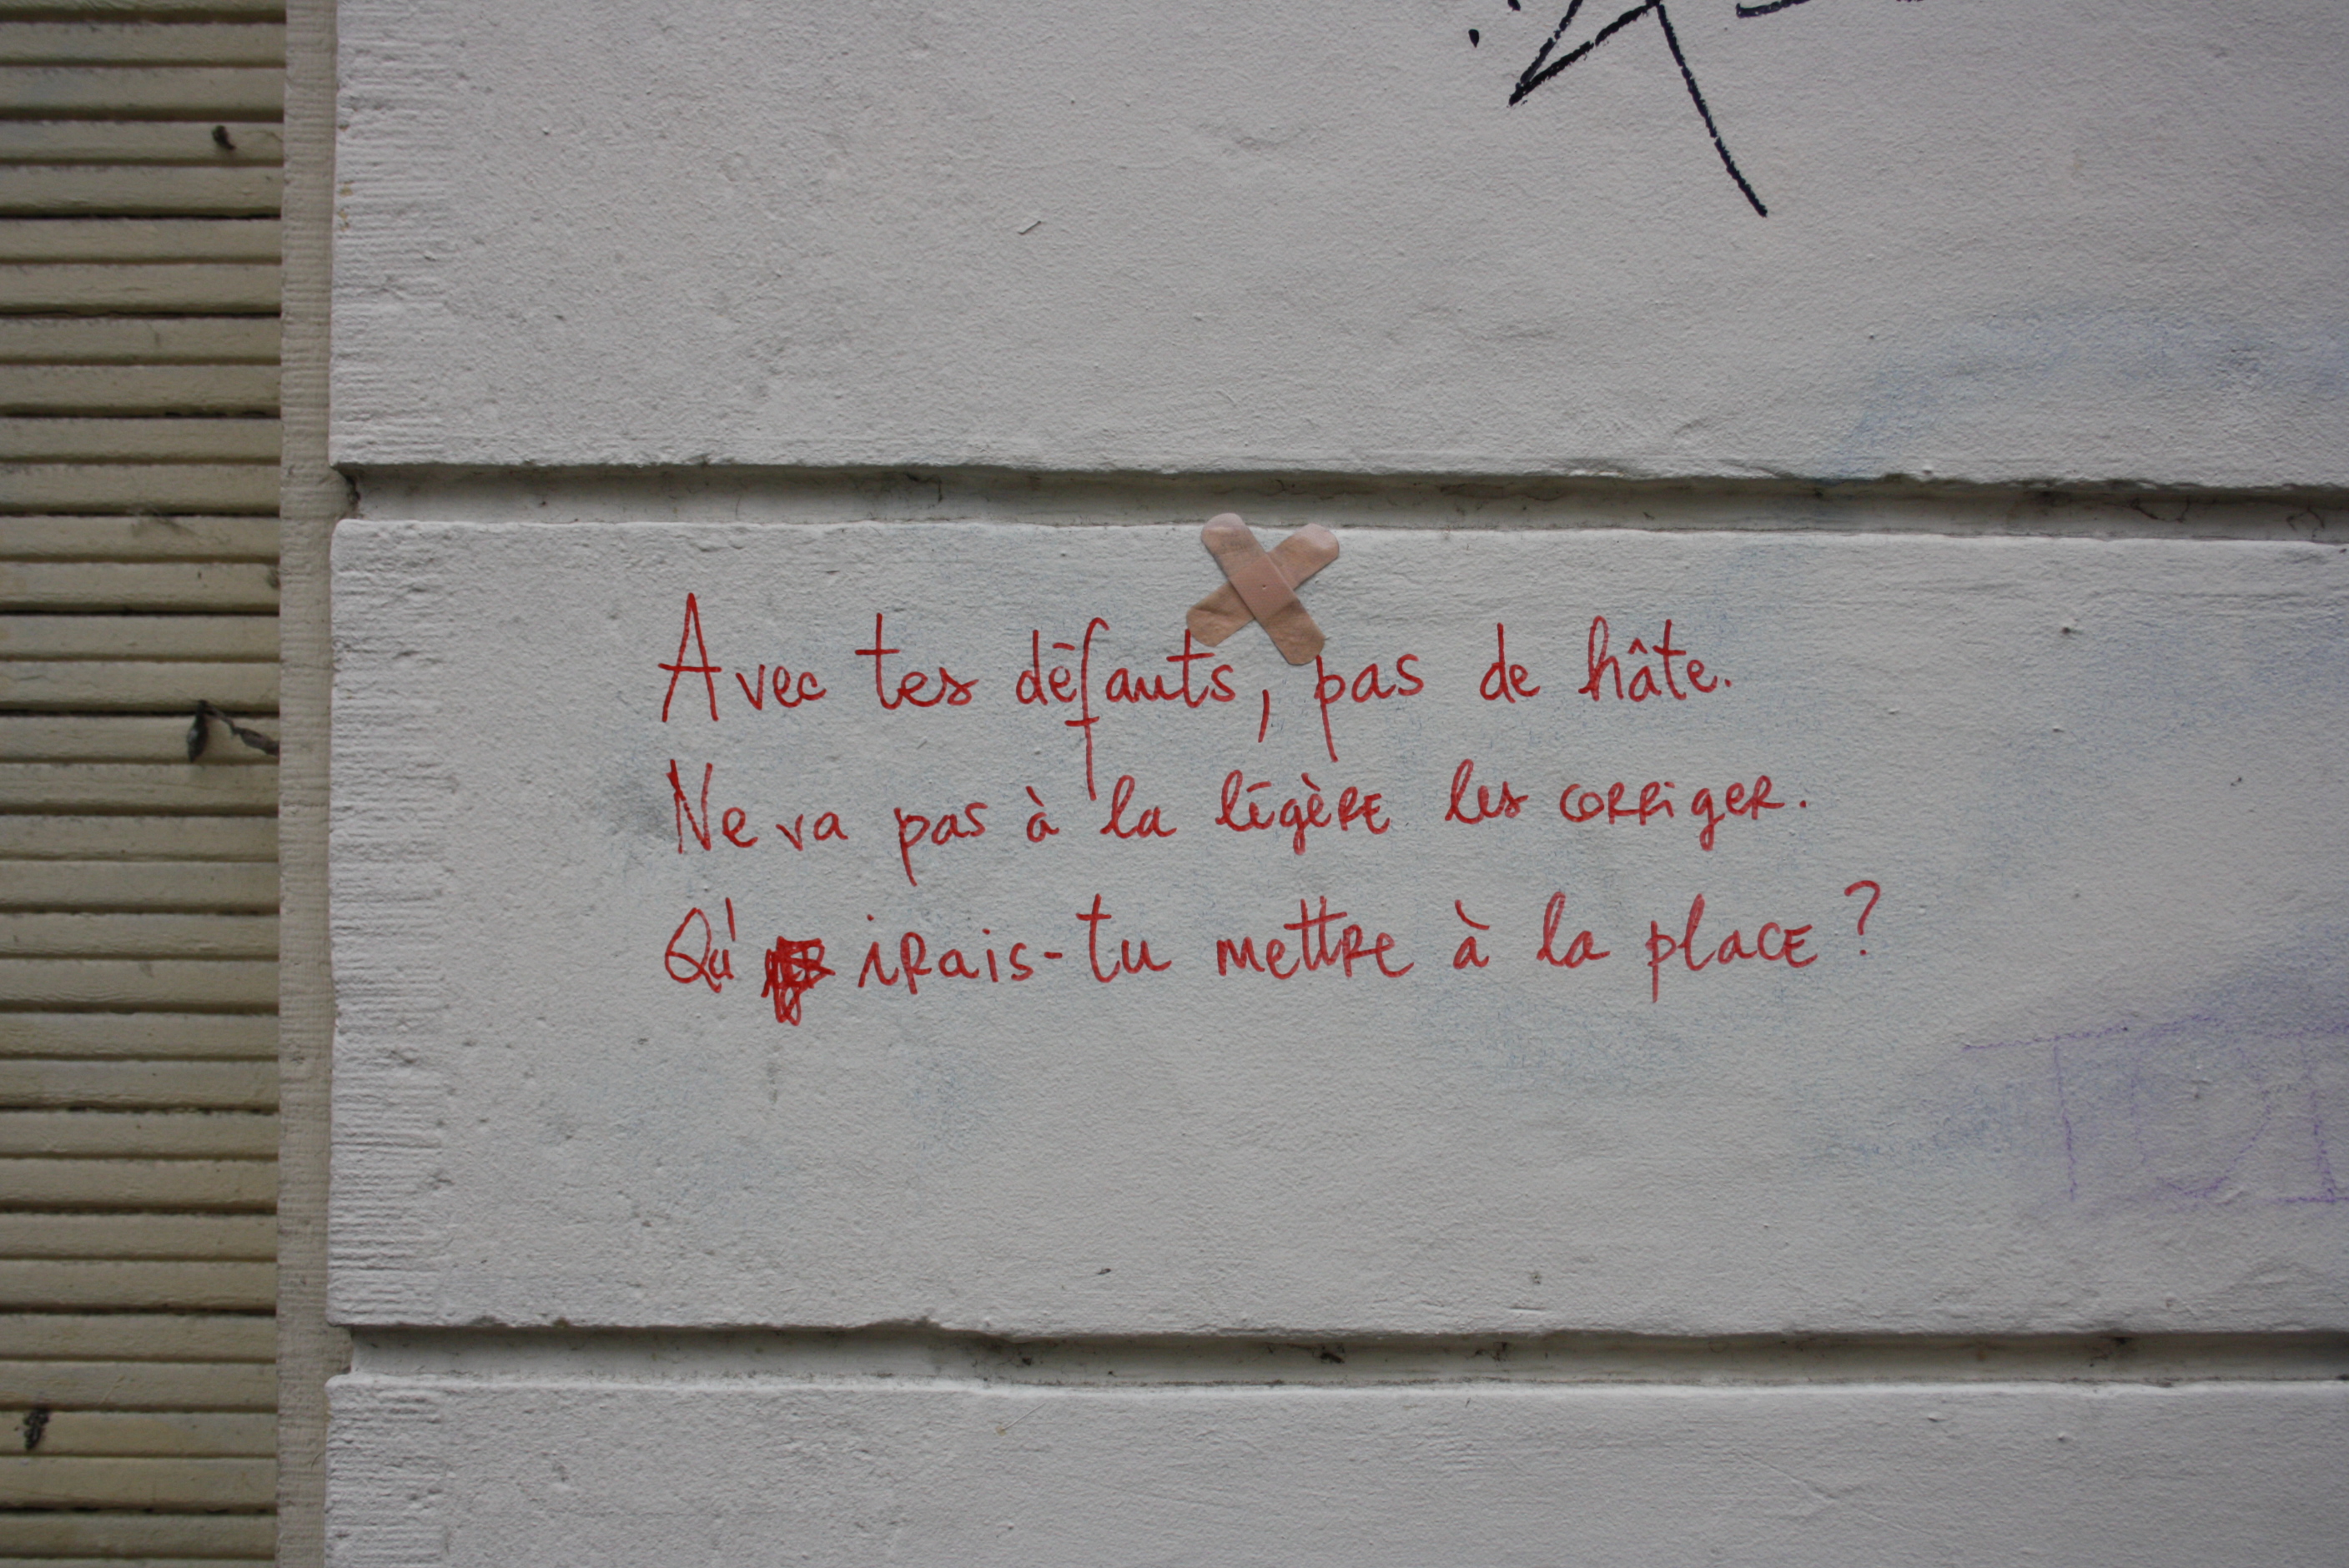 Avec tes défauts, pas de hâte.
Ne va pas à la légère les corriger.
Qu' irais-tu mettre à la place ?